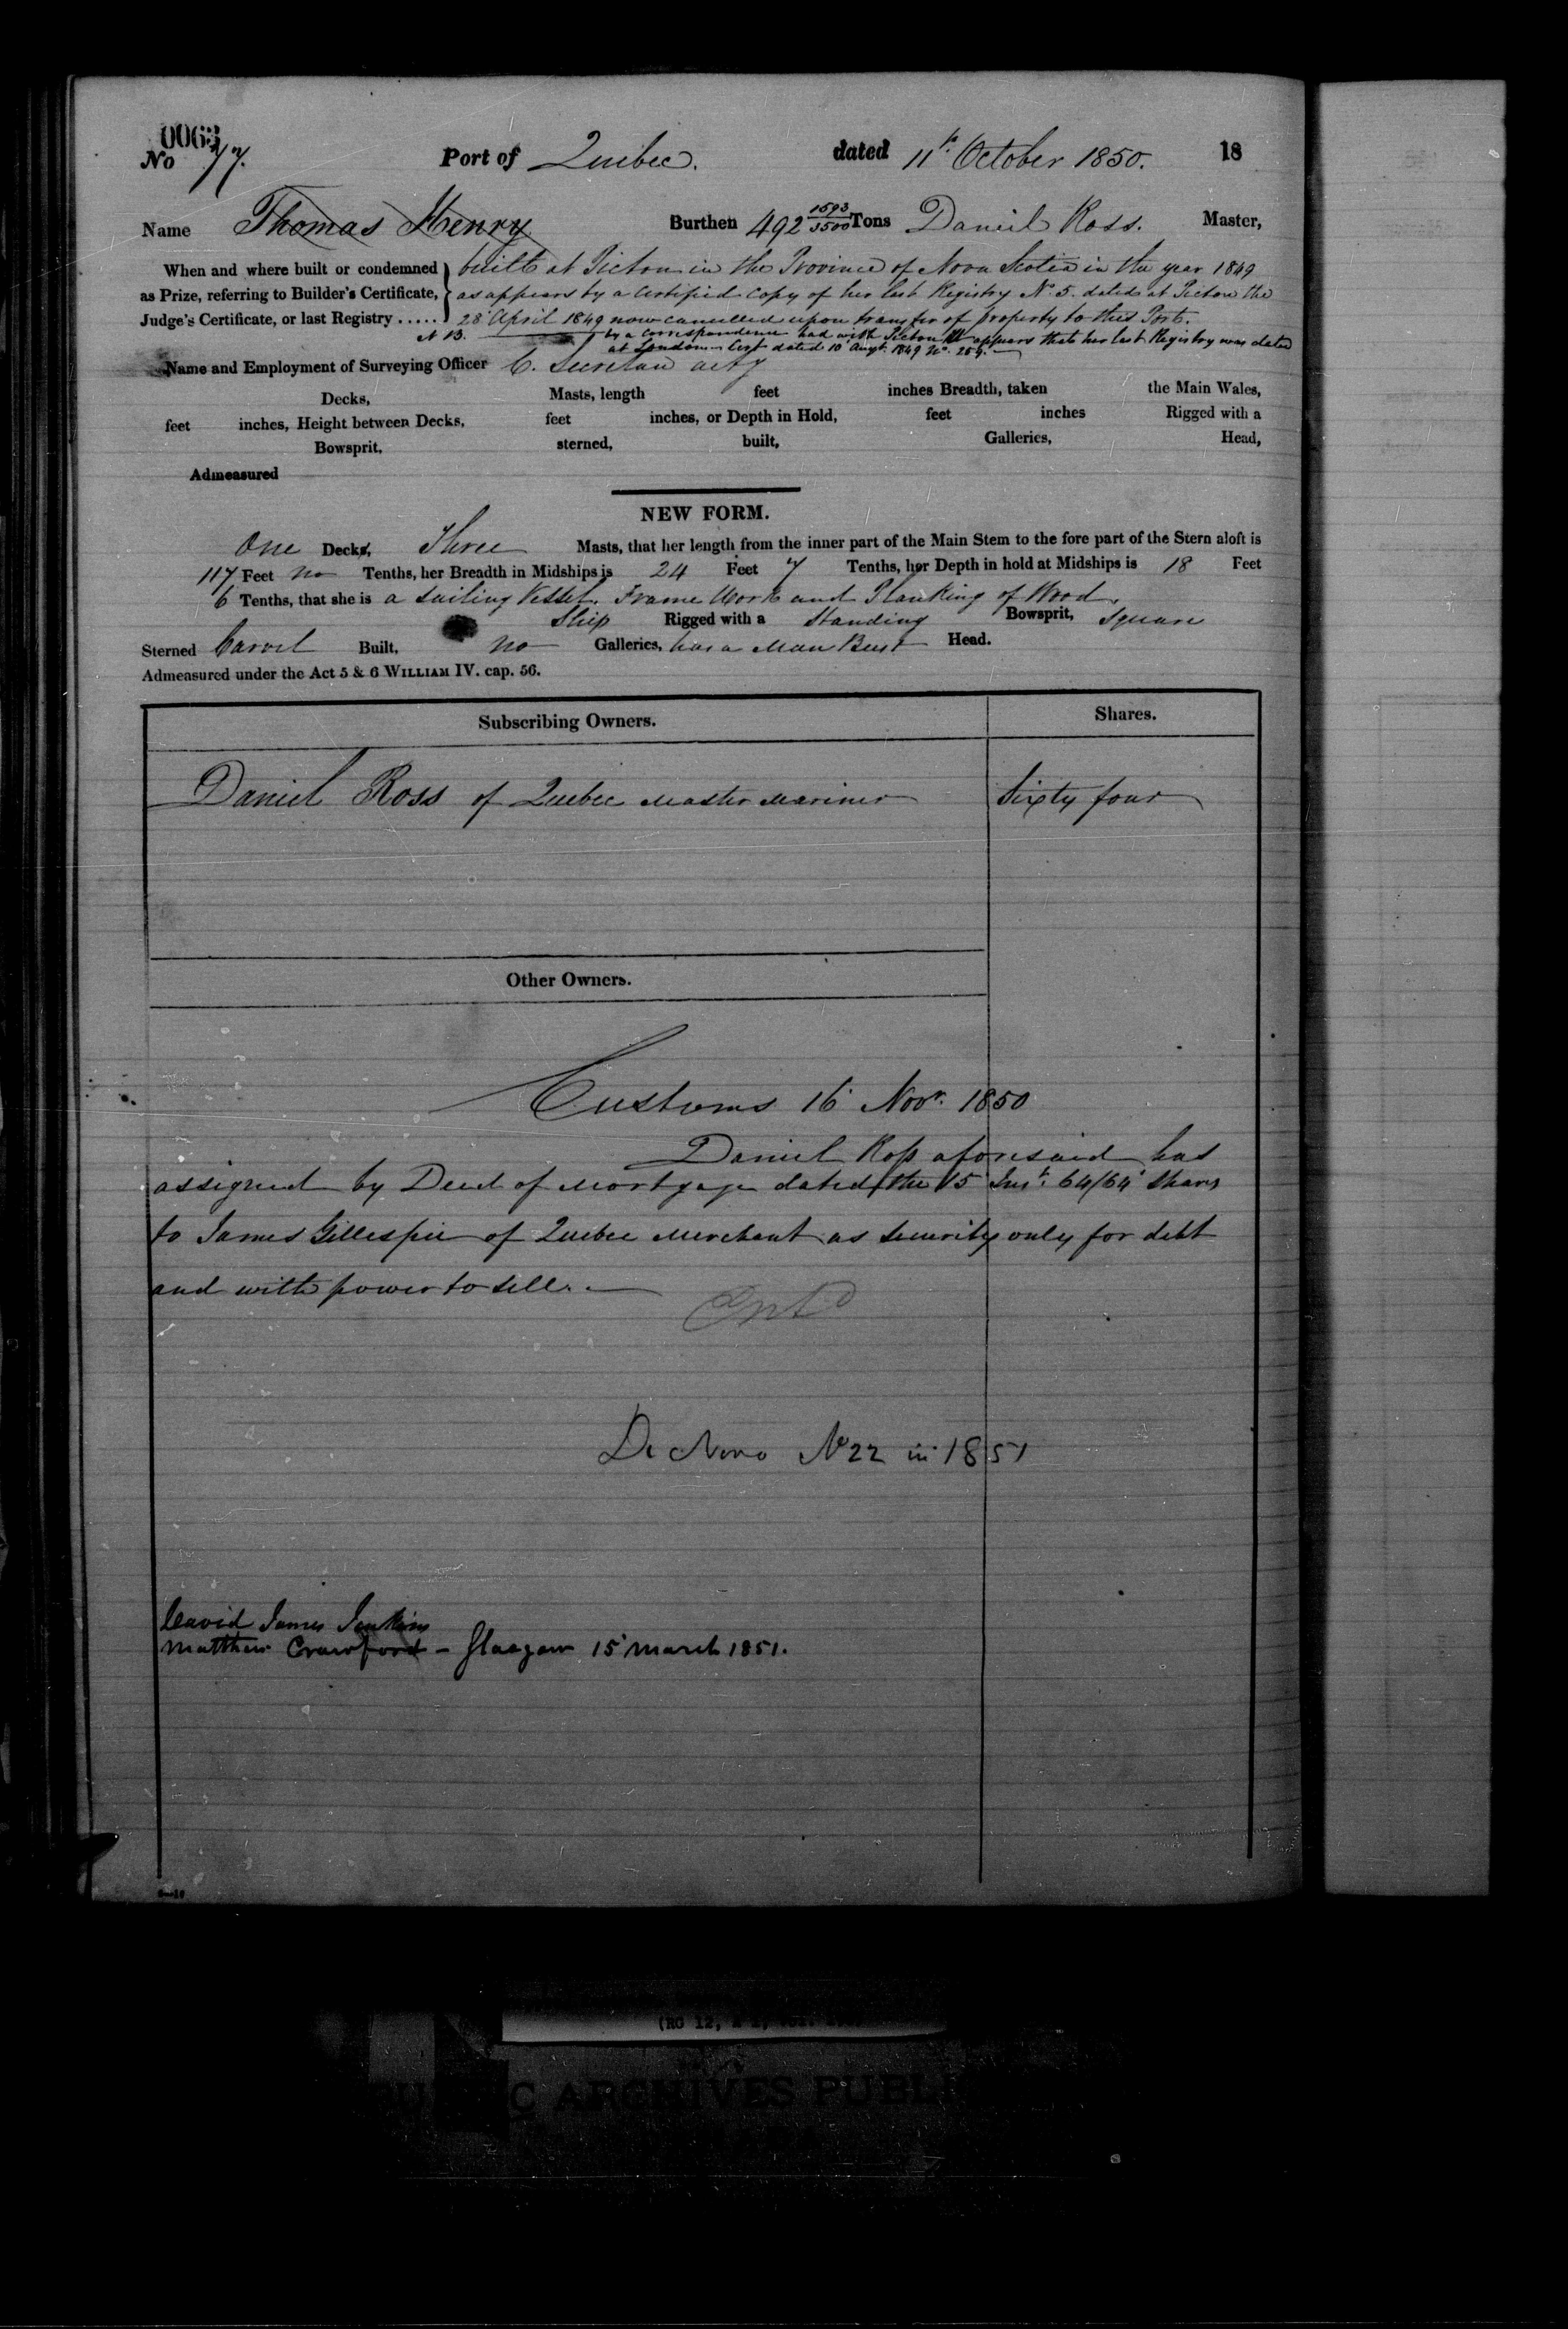 0063
No 77. Port of Quebec. dated 11th October 1850. 18
Name Thomas Henry Burthen 492 1593/3500 Tons Daniel Ross. Master,
When and where built or condemned as Prize, referring to Builder's Certificate, Judge's Certificate, or last Registry .....
built at Pictou in the Province of Nova Scotia in the year 1849
as appears by a certified copy of her last Registry No. 5. dated at Pictou the
28 April 1849 now cancelled upon transfer of property to this Port.
N B. by a correspondence had with Pictou it appears that her last Registry was dated
at London Cert dated 10 Augt. 1849 No.
Name and Employment of Surveying Officer C. Secretan actg
Decks, Masts, length feet inches Breadth, taken the Main Wales,
feet inches, Height between Decks, feet inches, or Depth in Hold, feet inches Rigged with a
Bowsprit, sterned, built, Galleries, Head,
Admeasured
NEW FORM.
One Decks, Three Masts, that her length from the inner part of the Main Stem to the fore part of the Stern aloft is
117 Feet no Tenths, her Breadth in Midships is 24 Feet 7 Tenths, her Depth in hold at Midships is 18 Feet
6 Tenths, that she is a sailing Vessel. Frame Work and Planking of Wood.
Ship Rigged with a Standing Bowsprit, Square
Sterned Carvel Built, no Galleries, has a Man Bust Head.
Admeasured under the Act 5 & 6 WILLIAM IV. cap. 56.
Subscribing Owners. Shares.
Daniel Ross of Quebec Master Mariner Sixty four
Other Owners.
Customs 16 Novr. 1850
Daniel Ross aforesaid has
assigned by Deed of Mortgage dated the 15 Inst. 64/64 Shares
to James Gillespie of Quebec Merchant as Security only for debt
and with power to sell.
Entd
De Novo No 22 in 1851
David James Jenkins
Matthew Crawford - Glasgow 15 March 1851.
(RG 12, A 1,
ARCHIVES PUBLI